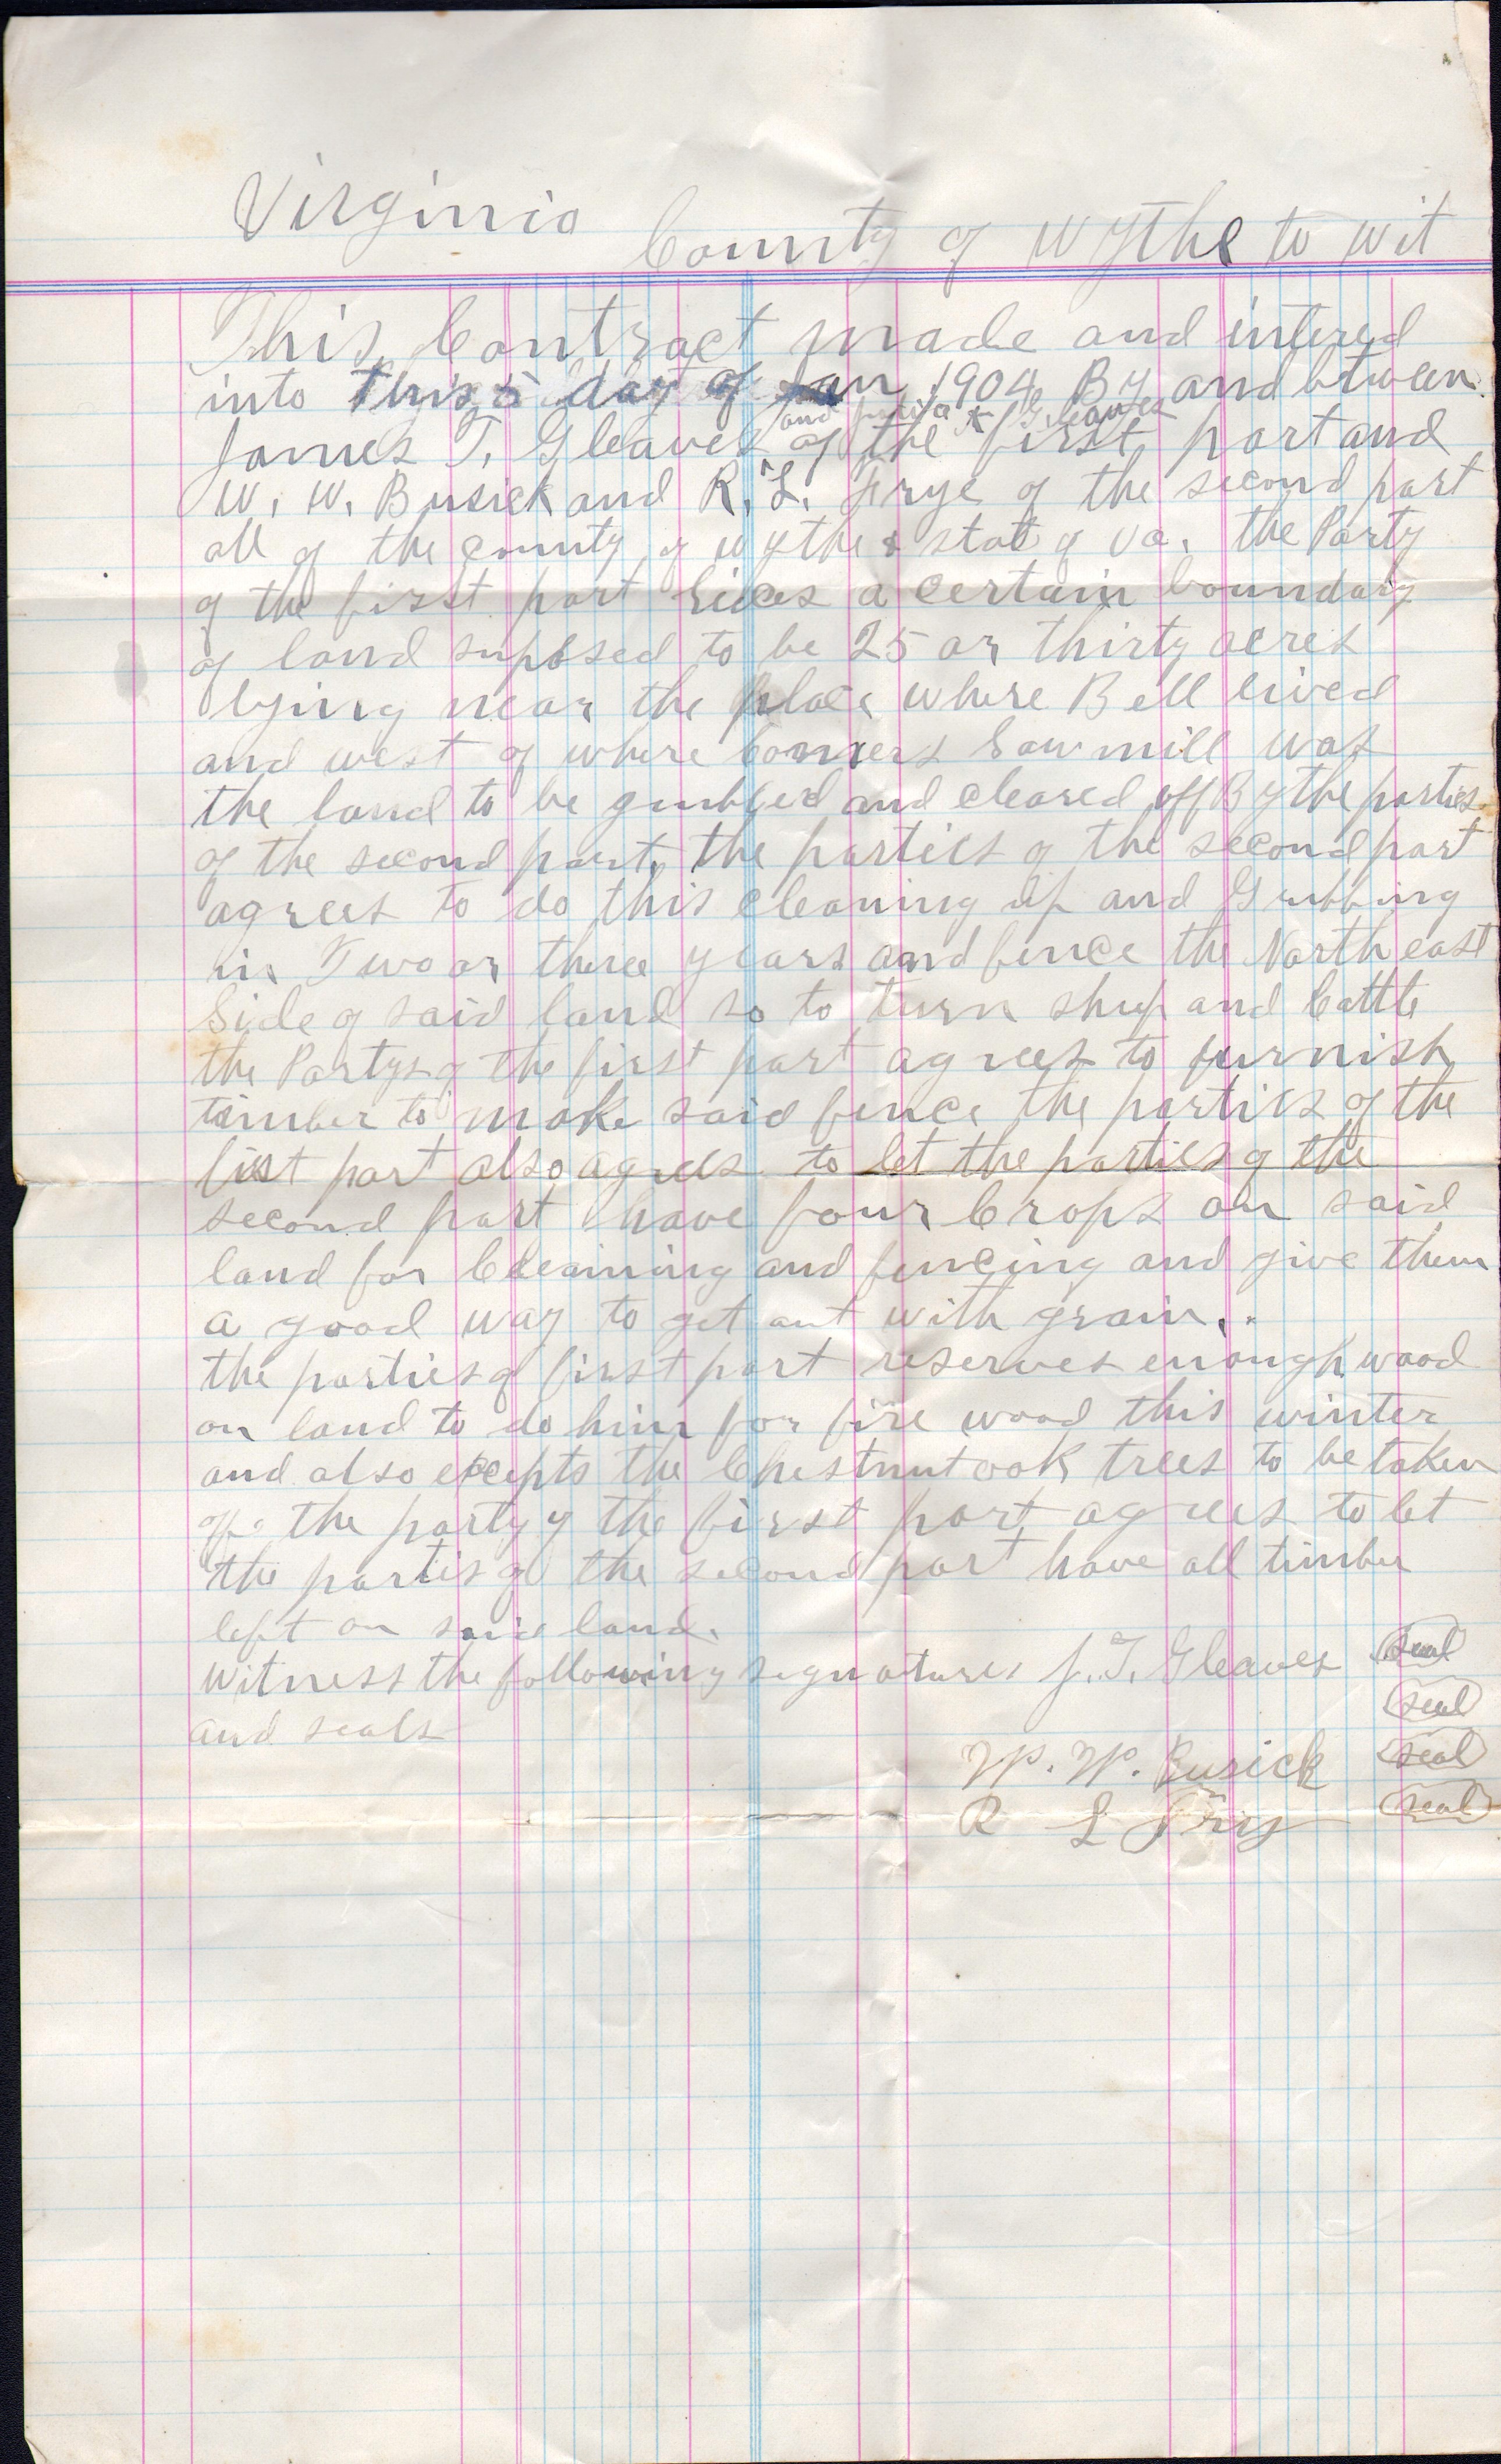 Virginia
County of Wythe to wit
This Contract made and intered
into this 5 day of Jan 1904 By and btween
and A Gleaves
James T. Gleaves of the first part and
W. W. Busick and R. L. Frye of the second part
all of the county of Wythe & stat of Va. the Party
of the first part a certain boundary
of land suposed to be 25 or thirty acres
lying near the place where Bell lived
and west of where Saw mill was
the land to be grubbed and cleared off By the parties
of the second part, the parties of the second part
agrees to do this cleaning up and Grubbing
in Two or three years and fence the North east
Side of said land so to turn shep and Cattle
the Partys of the first part agrees to furnish
timber to make said fence the parties of the
first part also agrees to let the parties of the
second part have four Crops on said
land for Cleaining and fencing and give them
a good way to get out with grain..
the parties of first part reserves enough wood
on land to do him for fire wood this winter
and also excepts the Chestnut oak trees to be taken
off. the party of the first part agrees to let
the partis of the second part have all timber
left on said land.
Witness the following signatures J. T. Gleaves seal
seal
and seals
W. W. Busick seal
R L Fry seal